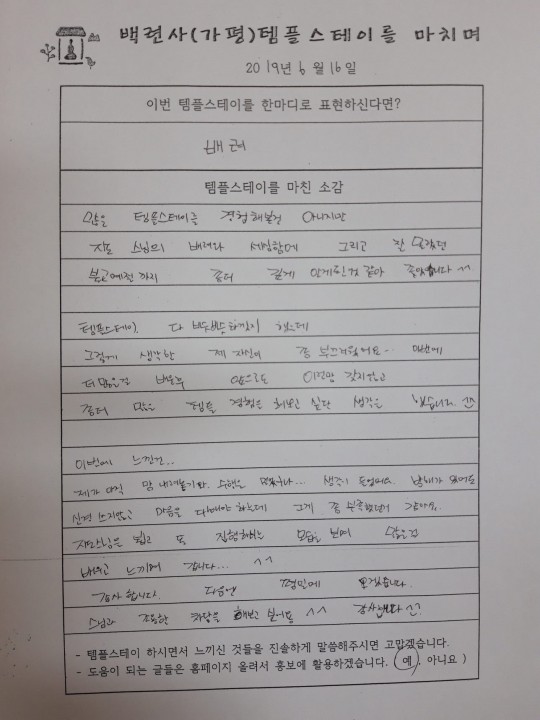 백련사(가평)템플스테이를 마치며
2019년 6월 16일
이번 템플스테이를 한마디로 표현하신다면?
배려
템플스테이를 마친 소감
많은 템플스테이를 경험해본건 아니지만
지도 스님의 배려와 세심함에 그리고 잘 몰랐던
불교예절 까지 좀더 깊게 알게된것 같아 좋았습니다 ^^
템플스테이 다 했는데
그렇게 생각한 제 자신이 좀 부끄러웠어요… 이번에
더 많은걸 배운후 앞으로도
좀더 많은 템플 경험을 해보고 싶단 생각을 했습니다.
이번에 느낀건..
제가 아직 맘 내려놓기와 수행을 생각이 들었어요.
신경 쓰지않고 마음을 다해야 하는데 그게 좀 부족했던거 같아요.
모습을 보며 많은걸
배우고 느끼며 갑니다… ^^
감사 합니다. 다음엔 평일에 오겠습니다.
스님과 조용한 차담을 해보고 싶어요 ^^ 감사합니다 ^^
- 템플스테이 하시면서 느끼신 것들을 진솔하게 말씀해주시면 고맙겠습니다.
- 도움이 되는 글들은 홈페이지 올려서 홍보에 활용하겠습니다. ( 예 . 아니요 )